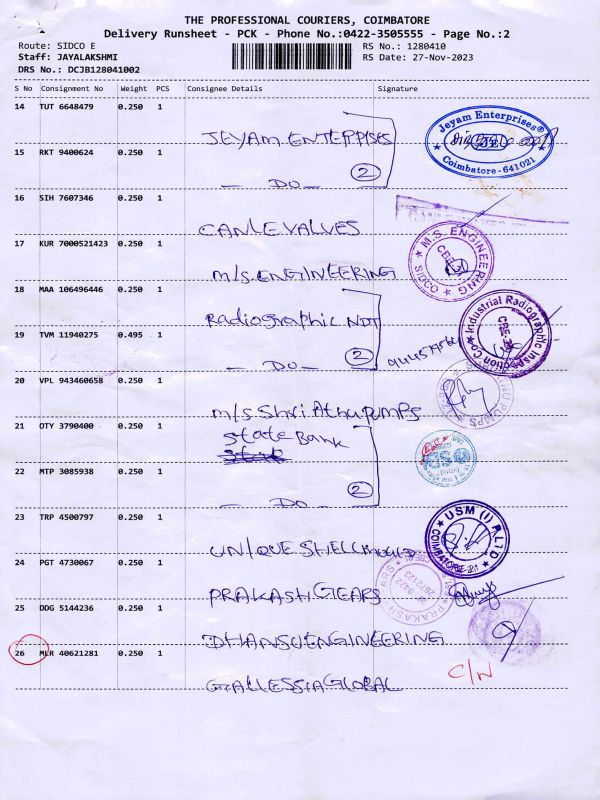 THE PROFESSIONAL COURIERS, COIMBATORE
Delivery Runsheet - PCK - Phone No.:0422-3505555 - Page No.:2
Route: SIDCO E RS No.: 1280410
Staff: JAYALAKSHMI RS Date: 27-Nov-2023
DRS No.: DCJB128041002
S No Consignment No Weight PCS Consignee Details Signature
14 TUT 6648479 0.250 1
JEYAM.ENTERPRISES
Jeyam Enterprises®
Coimbatore - 641021
15 RKT 9400624 0.250 1
— DO — 2
16 SIH 7607346 0.250 1
CANLEVALVES
17 KUR 7000521423 0.250 1
M/S.ENGINEERING
M.S. ENGINEERING
CBE
SIDCO
18 MAA 106496446 0.250 1
Radiographic NDT
Industrial Radiographic Inspection Co
19 TVM 11940275 0.495 1
— DO — 2
20 VPL 943460658 0.250 1
M/s Shri Athupumps
PUMPS
21 OTY 3790400 0.250 1
State Bank
22 MTP 3085938 0.250 1
— DO — 2
23 TRP 4500797 0.250 1
UNIQUE SHELLMOULD
USM (I) P LTD
COIMBATORE-21
24 PGT 4730067 0.250 1
PRAKASH GEARS
PRAKASH GEARS
25 DDG 5144236 0.250 1
DHANSUENGINEERING
26 MLR 40621281 0.250 1
GALLESSIA GLOBAL
C/N